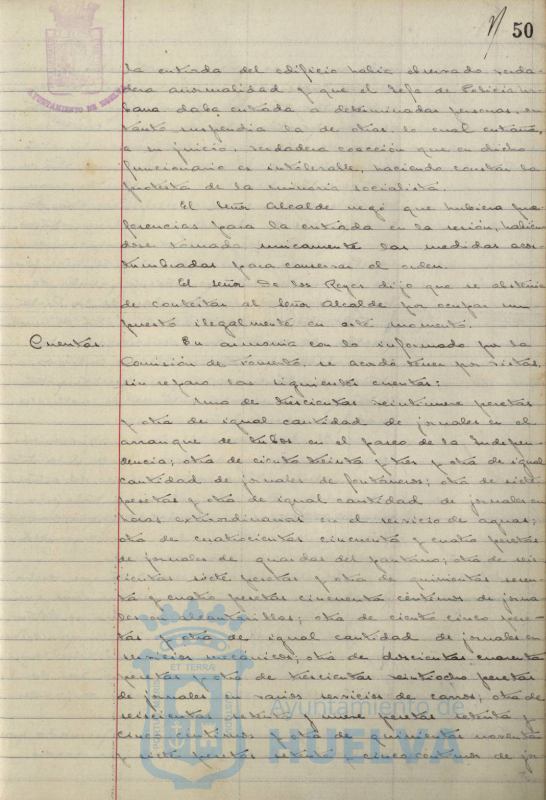 50
AYUNTAMIENTO DE HUELVA
la entrada del edificio había observado verda-
dera anormalidad y que el Jefe de Policía ur-
bana daba entrada a determinadas personas, en
tanto suspendía la de otras, lo cual entraña,
a su juicio, verdadera coacción que en dicho
funcionario es intolerable, haciendo constar la
protesta de la minoría socialista.
El Señor Alcalde negó que hubiera pre-
ferencias para la entrada en la sesión, habien-
dose tomado unicamente las medidas acos-
tumbradas para conservar el orden.
El Señor De los Reyes dijo que se abstenía
de contestar al Señor Alcalde por ocupar un
puesto ilegalmente en este momento.
Cuentas. En armonía con lo informado por la
Comisión de Fomento, se acordó tener por vistas,
sin reparo las siguientes cuentas:
Una de trescientas veintinueve pesetas
y otra de igual cantidad de jornales en el
arranque de tubos en el paseo de la Indepen-
dencia; otra de ciento treinta y tres y otra de igual
cantidad de jornales de fontaneros; otra de siete
pesetas y otra de igual cantidad de jornales en
horas extraordinarias en el servicio de aguas;
otra de cuatrocientas cincuenta y cuatro pesetas
de jornales de guardas del pantano; otra de seis-
cientas siete pesetas y otra de quinientas sesen-
ta y cuatro pesetas cincuenta céntimos de jorna-
les en alcantarillas; otra de ciento cinco pese-
tas y otra de igual cantidad de jornales en
servicios mecánicos; otra de doscientas cuarenta
pesetas y otra de trescientas veintiocho pesetas
de jornales en varios servicios de carros; otra de
seiscientas setenta y nueve pesetas setenta y
cinco céntimos y otra de quinientas noventa
y siete pesetas setenta y cinco céntimos de jor-
ET TERRA
Ayuntamiento de
HUELVA